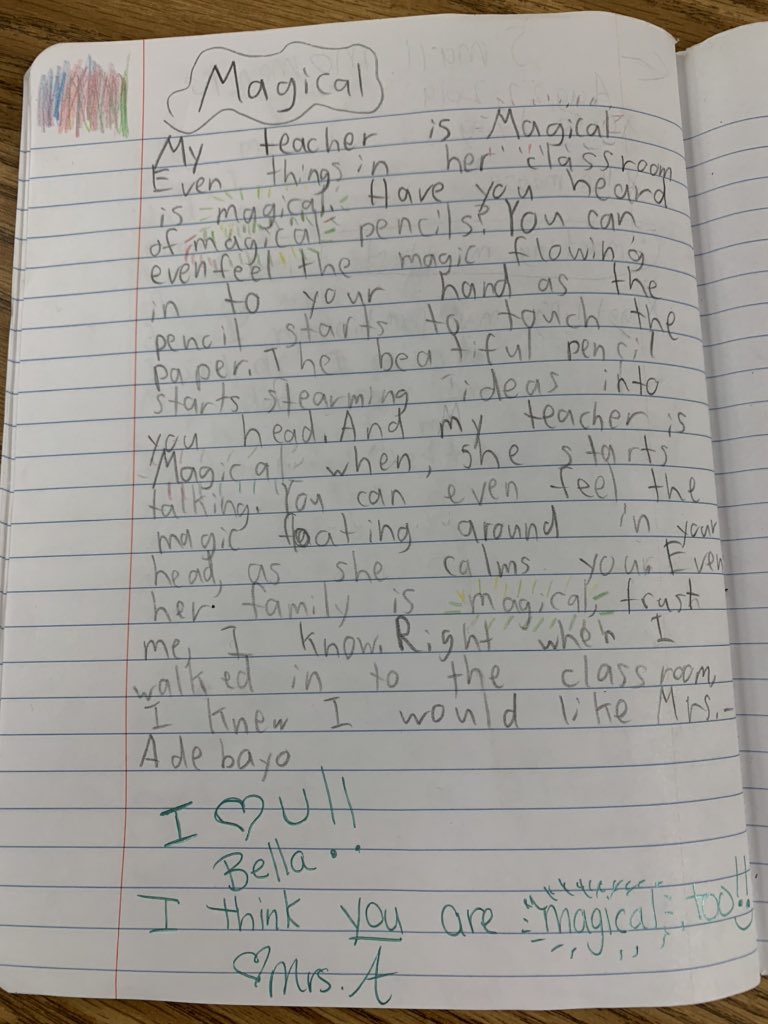 Magical
My teacher is Magical
Even things in her classroom
is magical. Have you heard
of magical pencils? You can
even feel the magic flowing
in to your hand as the
pencil starts to touch the
paper. The beautiful pencil
starts stearming ideas into
you head. And my teacher is
Magical when, she starts
talking. You can even feel the
magic floating around in your
head, as she calms you. Even
her family is magical, trust
me, I know. Right when I
walked in to the classroom,
I knew I would like Mrs.-
Adebayo
I ♡ U!!
Bella
I think you are magical too!!
♡Mrs. A